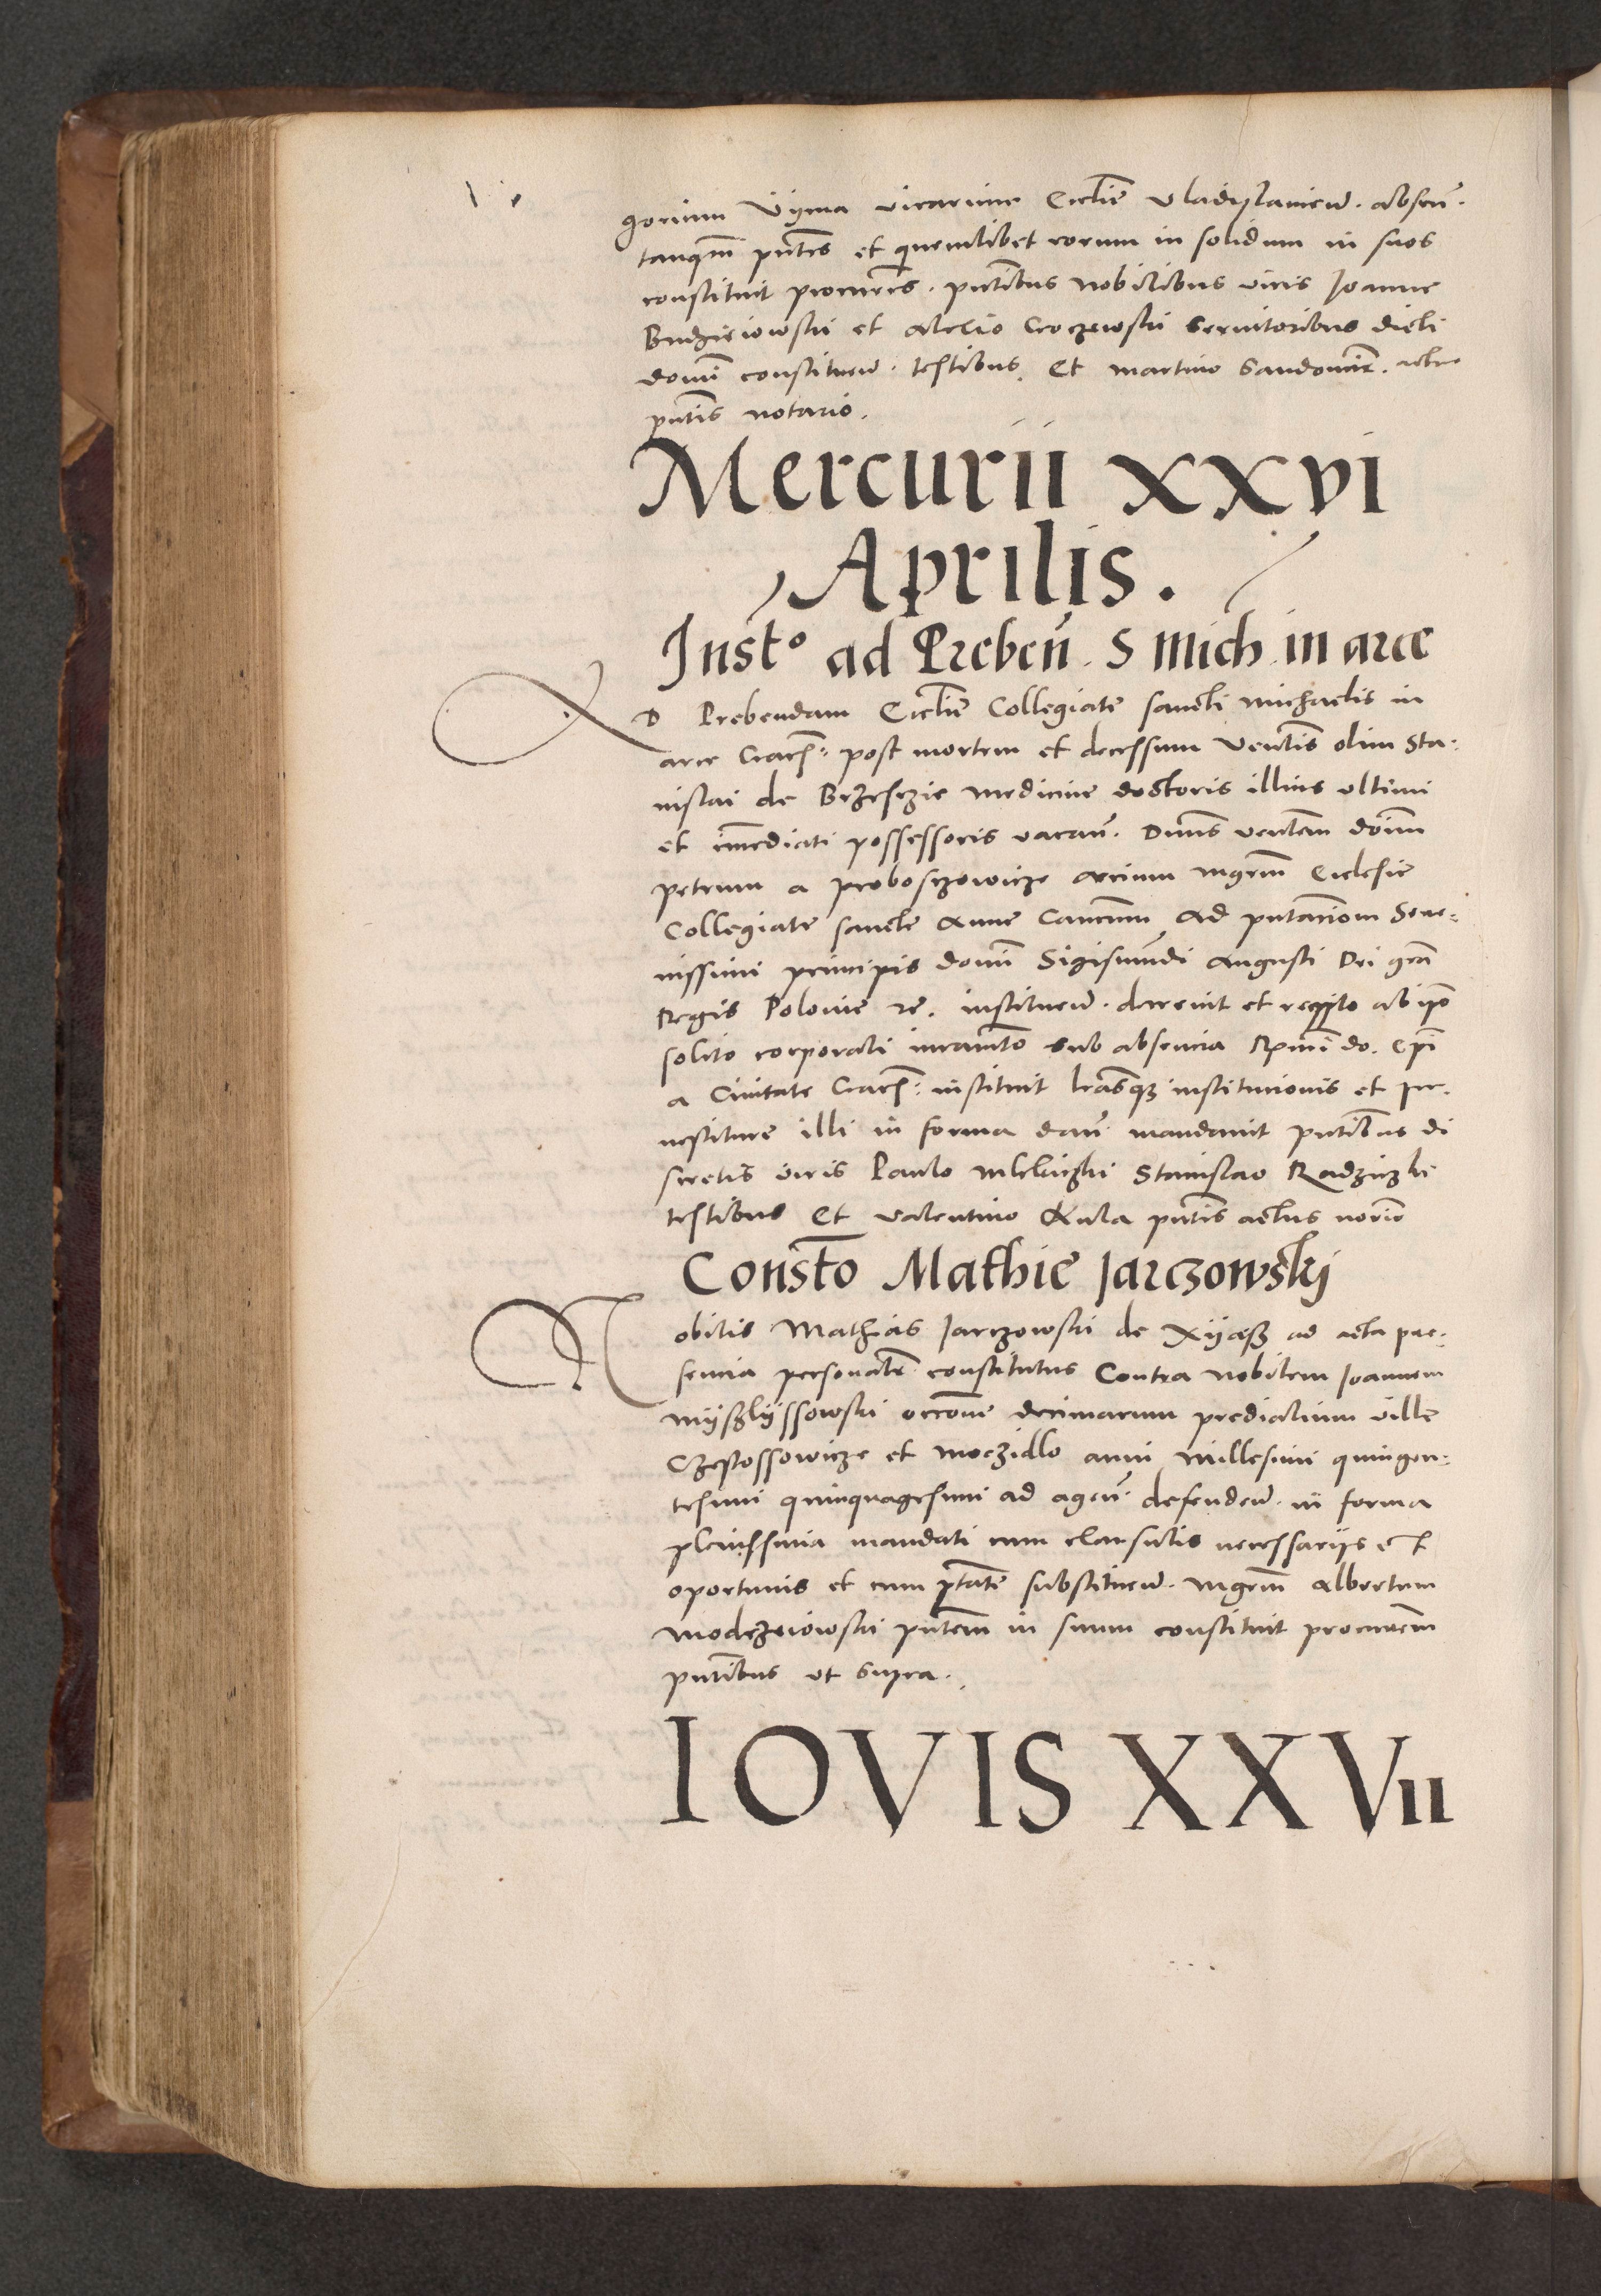 gorium Vyma vicarium Ecclie Vladislavien. absen.
tanqm pntes et quemlibet eorum in solidum in suos
constituit procures. pntibus nobilibus viris Joanne
Budzieiowski et Alexio Croczewski servitoribus dicti
domi constituen. testibus. Et Martino Sandomie. actus
pntis notario.
Mercurii XXVI
Aprilis.
Inst° ad Preben. S Mich. in arce
AD Prebendam Ecclie Collegiate sancti Michaelis in
arce Crach: post mortem et decessum Ventis olim Sta-
nislai de Brzesczie medicine doctoris illius ultimi
et imediati possessoris vacan. Dnus ventem domi
petrum a proboszczowicze arcium mgrm Ecclesie
Collegiate sancte Anne Canum Ad pntacionem Sere-
nissimi principis domi Sigismundi Augusti Dei gra
Regis Polonie rc. instituen. decrevit et recepto ab ipo
solito corporali iuramto sub absencia Rmi do. Epi
a Civitate Crach: instituit lrasq institucionis et in-
vestiture illi in forma dan. mandavit pntibus di
scretis viris Paulo Stanislao Radziczki
testibus Et Valentino Kula pntis actus norio
Consto Mathie Jarczowsky
Nobilis Mathias Jarczowski de Xyasz ad acta pre-
sencia personalr constitutus Contra nobilem Joannem
Myszlyssowski occone decimarum predialium ville
Czestossowicze et Moczidlo anni millesimi quingen-
tesimi quinquagesimi ad agen. defenden. in forma
plenissima mandati cum clausulis necessariis et
oportunis et cum ptate substituen. mgrm Albertum
Modrzeiowski pntem in suum constituit procurem
pntibus ut supra.
IOVIS XXVII